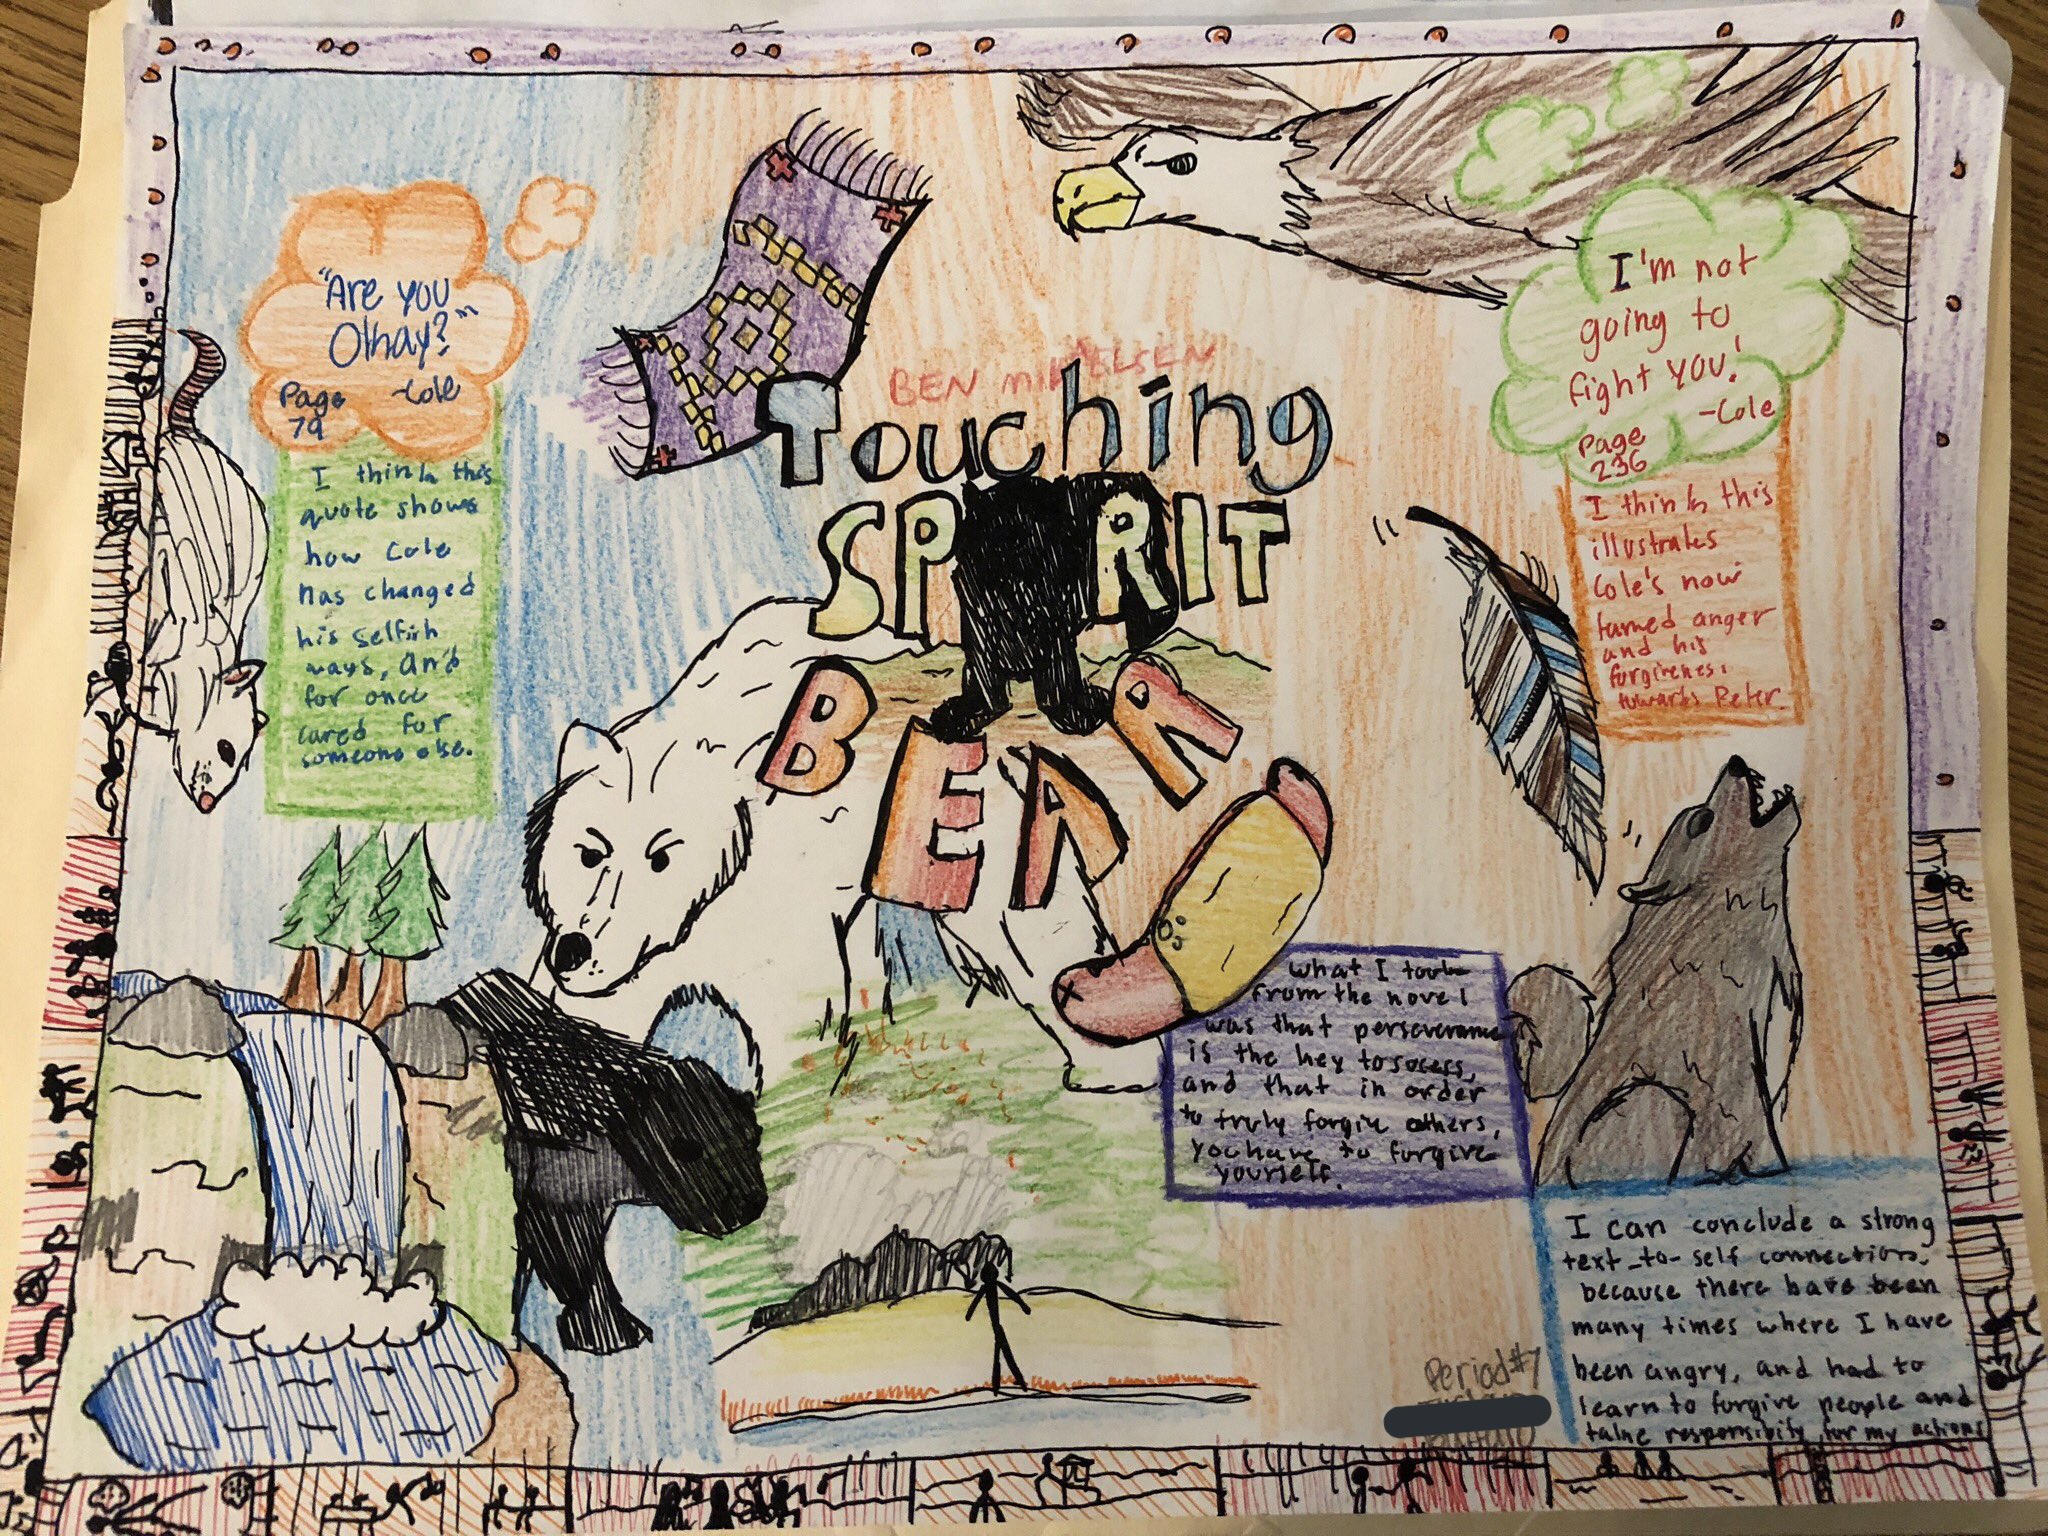 "Are you
Okay?"
Page -Cole
79
I think this
quote shows
how Cole
has changed
his selfish
ways, and
for once
cared for
someone else.
BEN MIKAELSEN
Touching
SPIRIT
BEAR
I'm not
going to
fight you!
-Cole
Page
236
I think this
illustrates
Cole's now
tamed anger
and his
forgivenes,
towards Peter.
what I took
from the novel
was that perseverance
is the key to socess,
and that in order
to truly forgive others,
you have to forgive
yourself.
I can conclude a strong
text-to-self connection,
because there have been
many times where I have
been angry, and had to
learn to forgive people and
take responsibility for my actions
Period #7